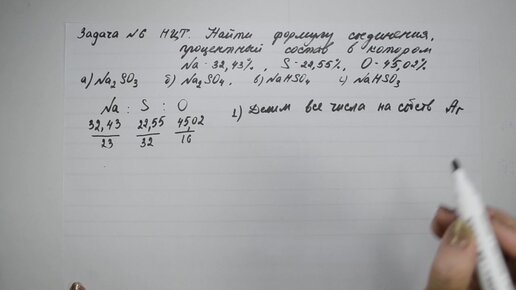 Задача №6 НЦТ. Найти формулу соединения,
процентный состав в котором
Na - 32,43%, S - 22,55%, O - 45,02%
а) Na₂SO₃ б) Na₂SO₄, в) NaHSO₄ г) NaHSO₃
Na : S : O
32,43/23 22,55/32 45,02/16
1) Делим все числа на Ar